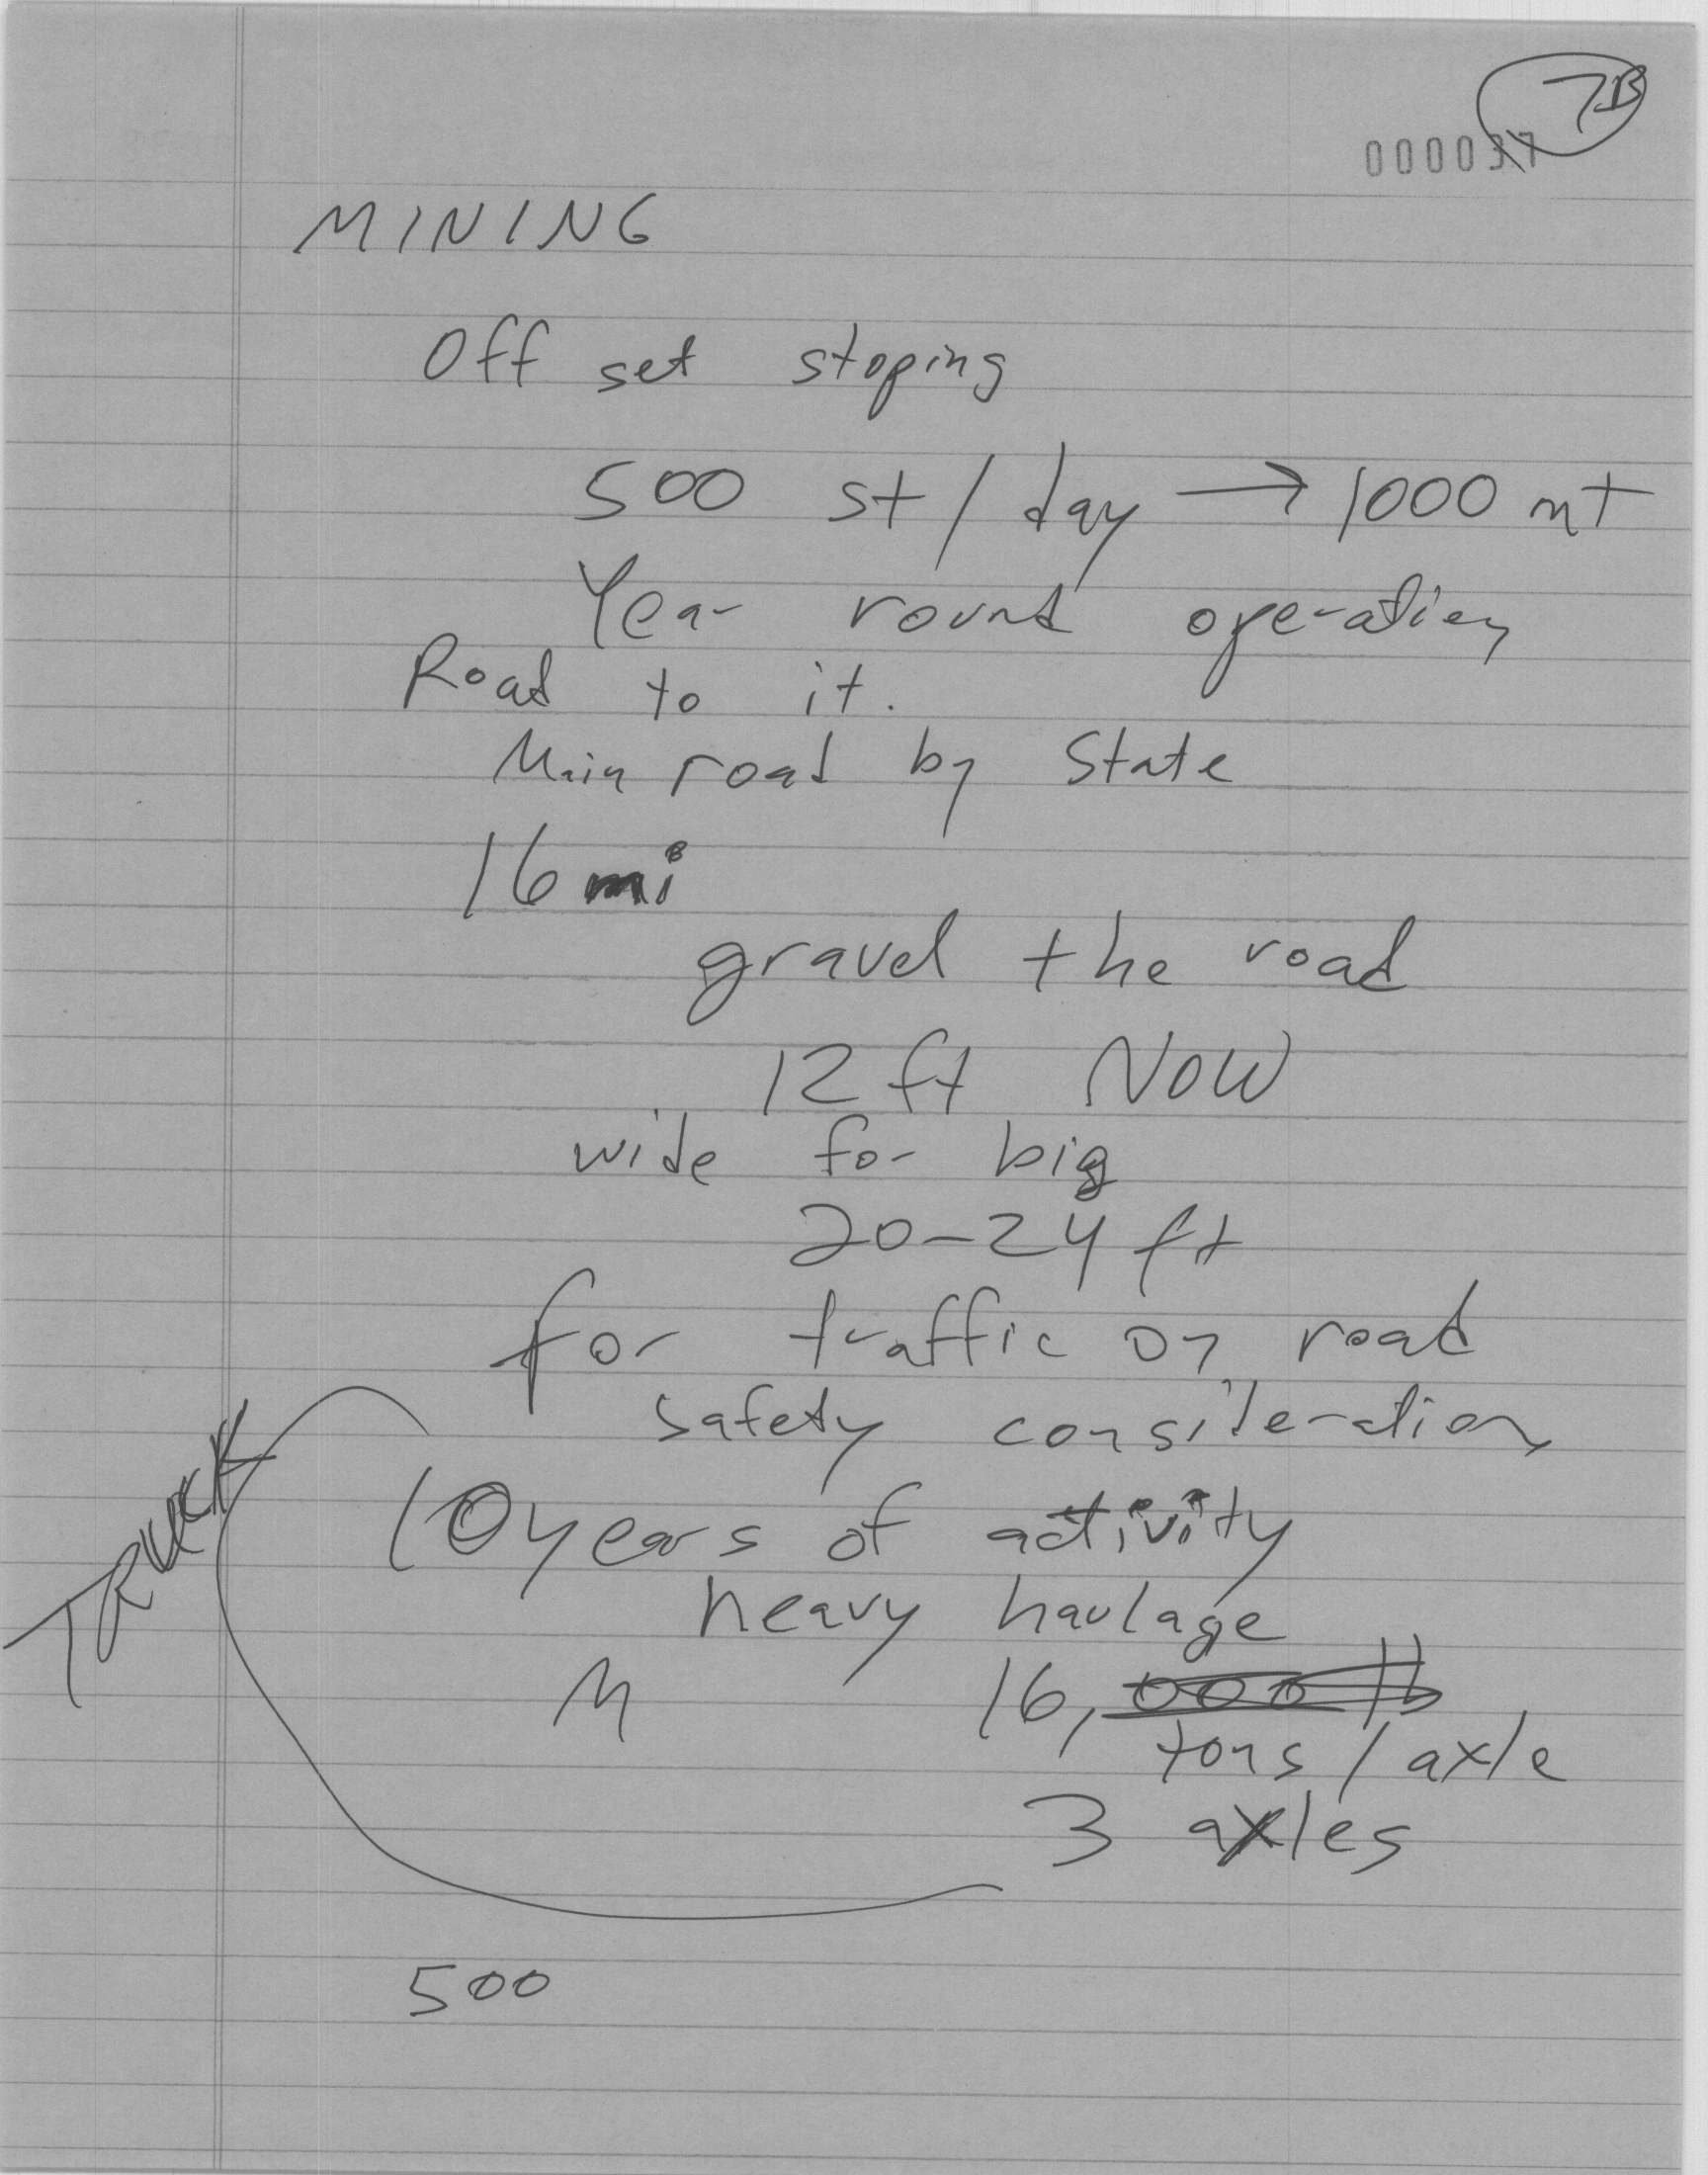 7B
000037
MINING
Off set stoping
500 st / day → 1000 mt
Year round operation
Road to it.
Main road by State
16 mi
gravel the road
12 ft NOW
wide for big
20-24 ft
for traffic on road
safety consideration
TRUCK
10 years of activity
heavy haulage
M 16, 000 lb
tons / axle
3 axles
500